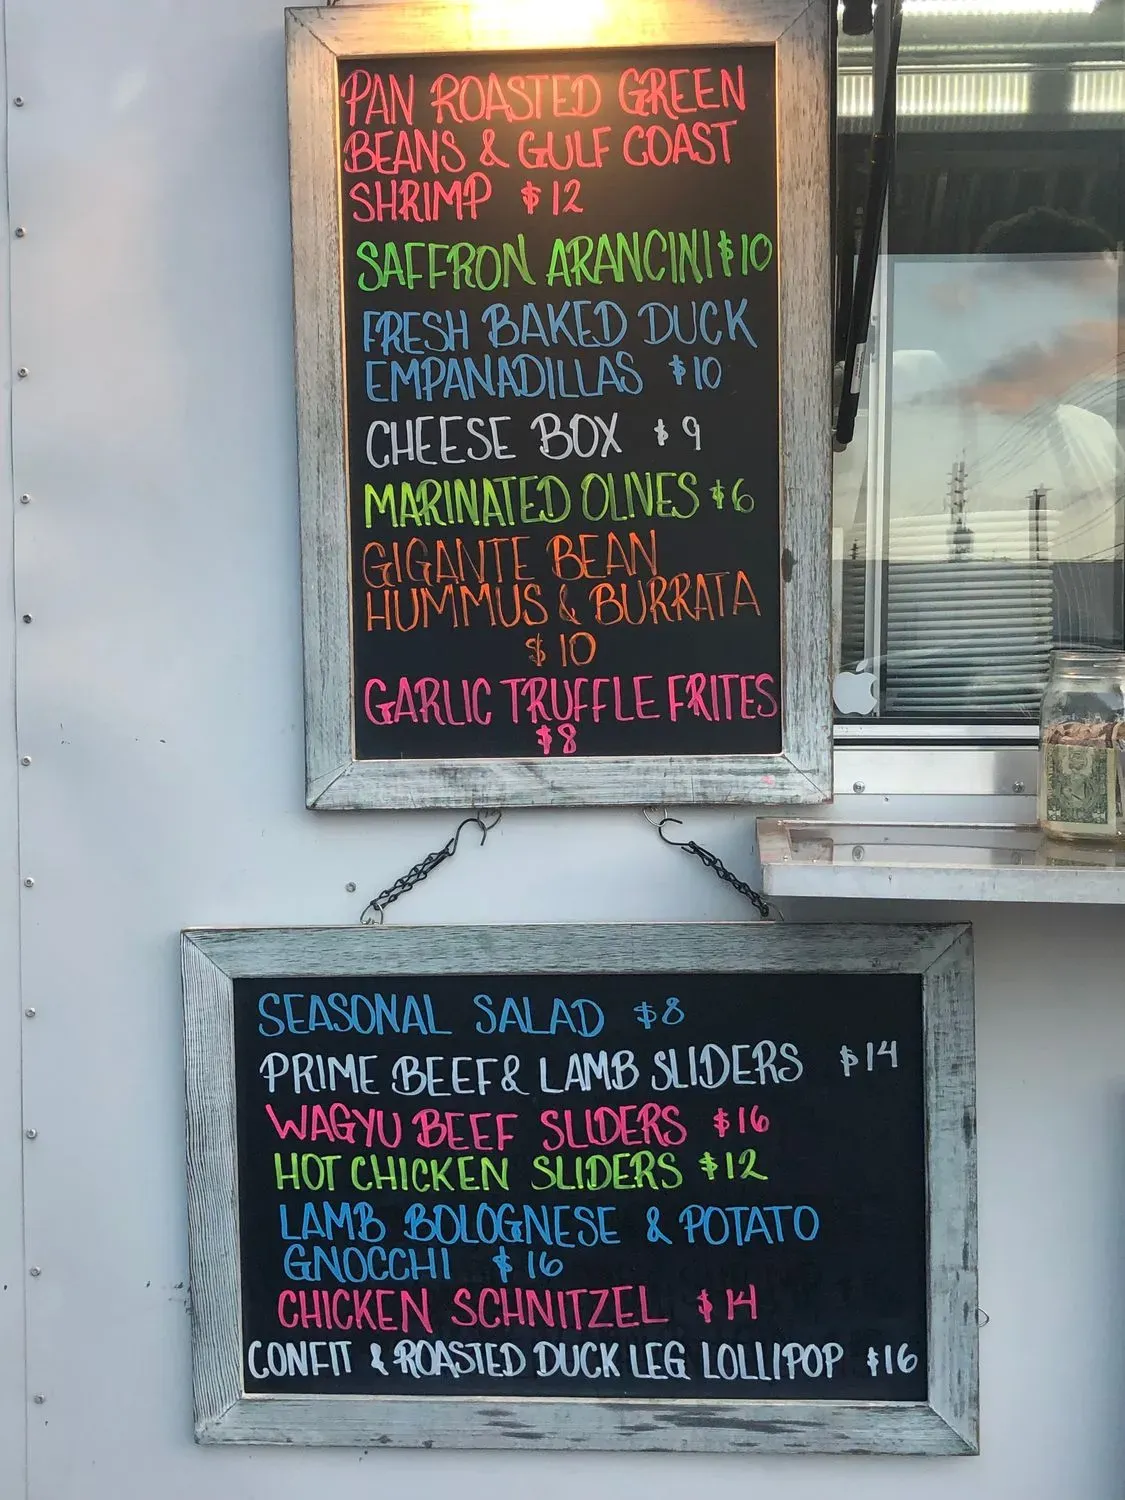 PAN ROASTED GREEN
BEANS & GULF COAST
SHRIMP $12
SAFFRON ARANCINI $10
FRESH BAKED DUCK
EMPANADILLAS $10
CHEESE BOX $9
MARINATED OLIVES $6
GIGANTE BEAN
HUMMUS & BURRATA
$10
GARLIC TRUFFLE FRITES
$8
SEASONAL SALAD $8
PRIME BEEF & LAMB SLIDERS $14
WAGYU BEEF SLIDERS $16
HOT CHICKEN SLIDERS $12
LAMB BOLOGNESE & POTATO
GNOCCHI $16
CHICKEN SCHNITZEL $14
CONFIT & ROASTED DUCK LEG LOLLIPOP $16